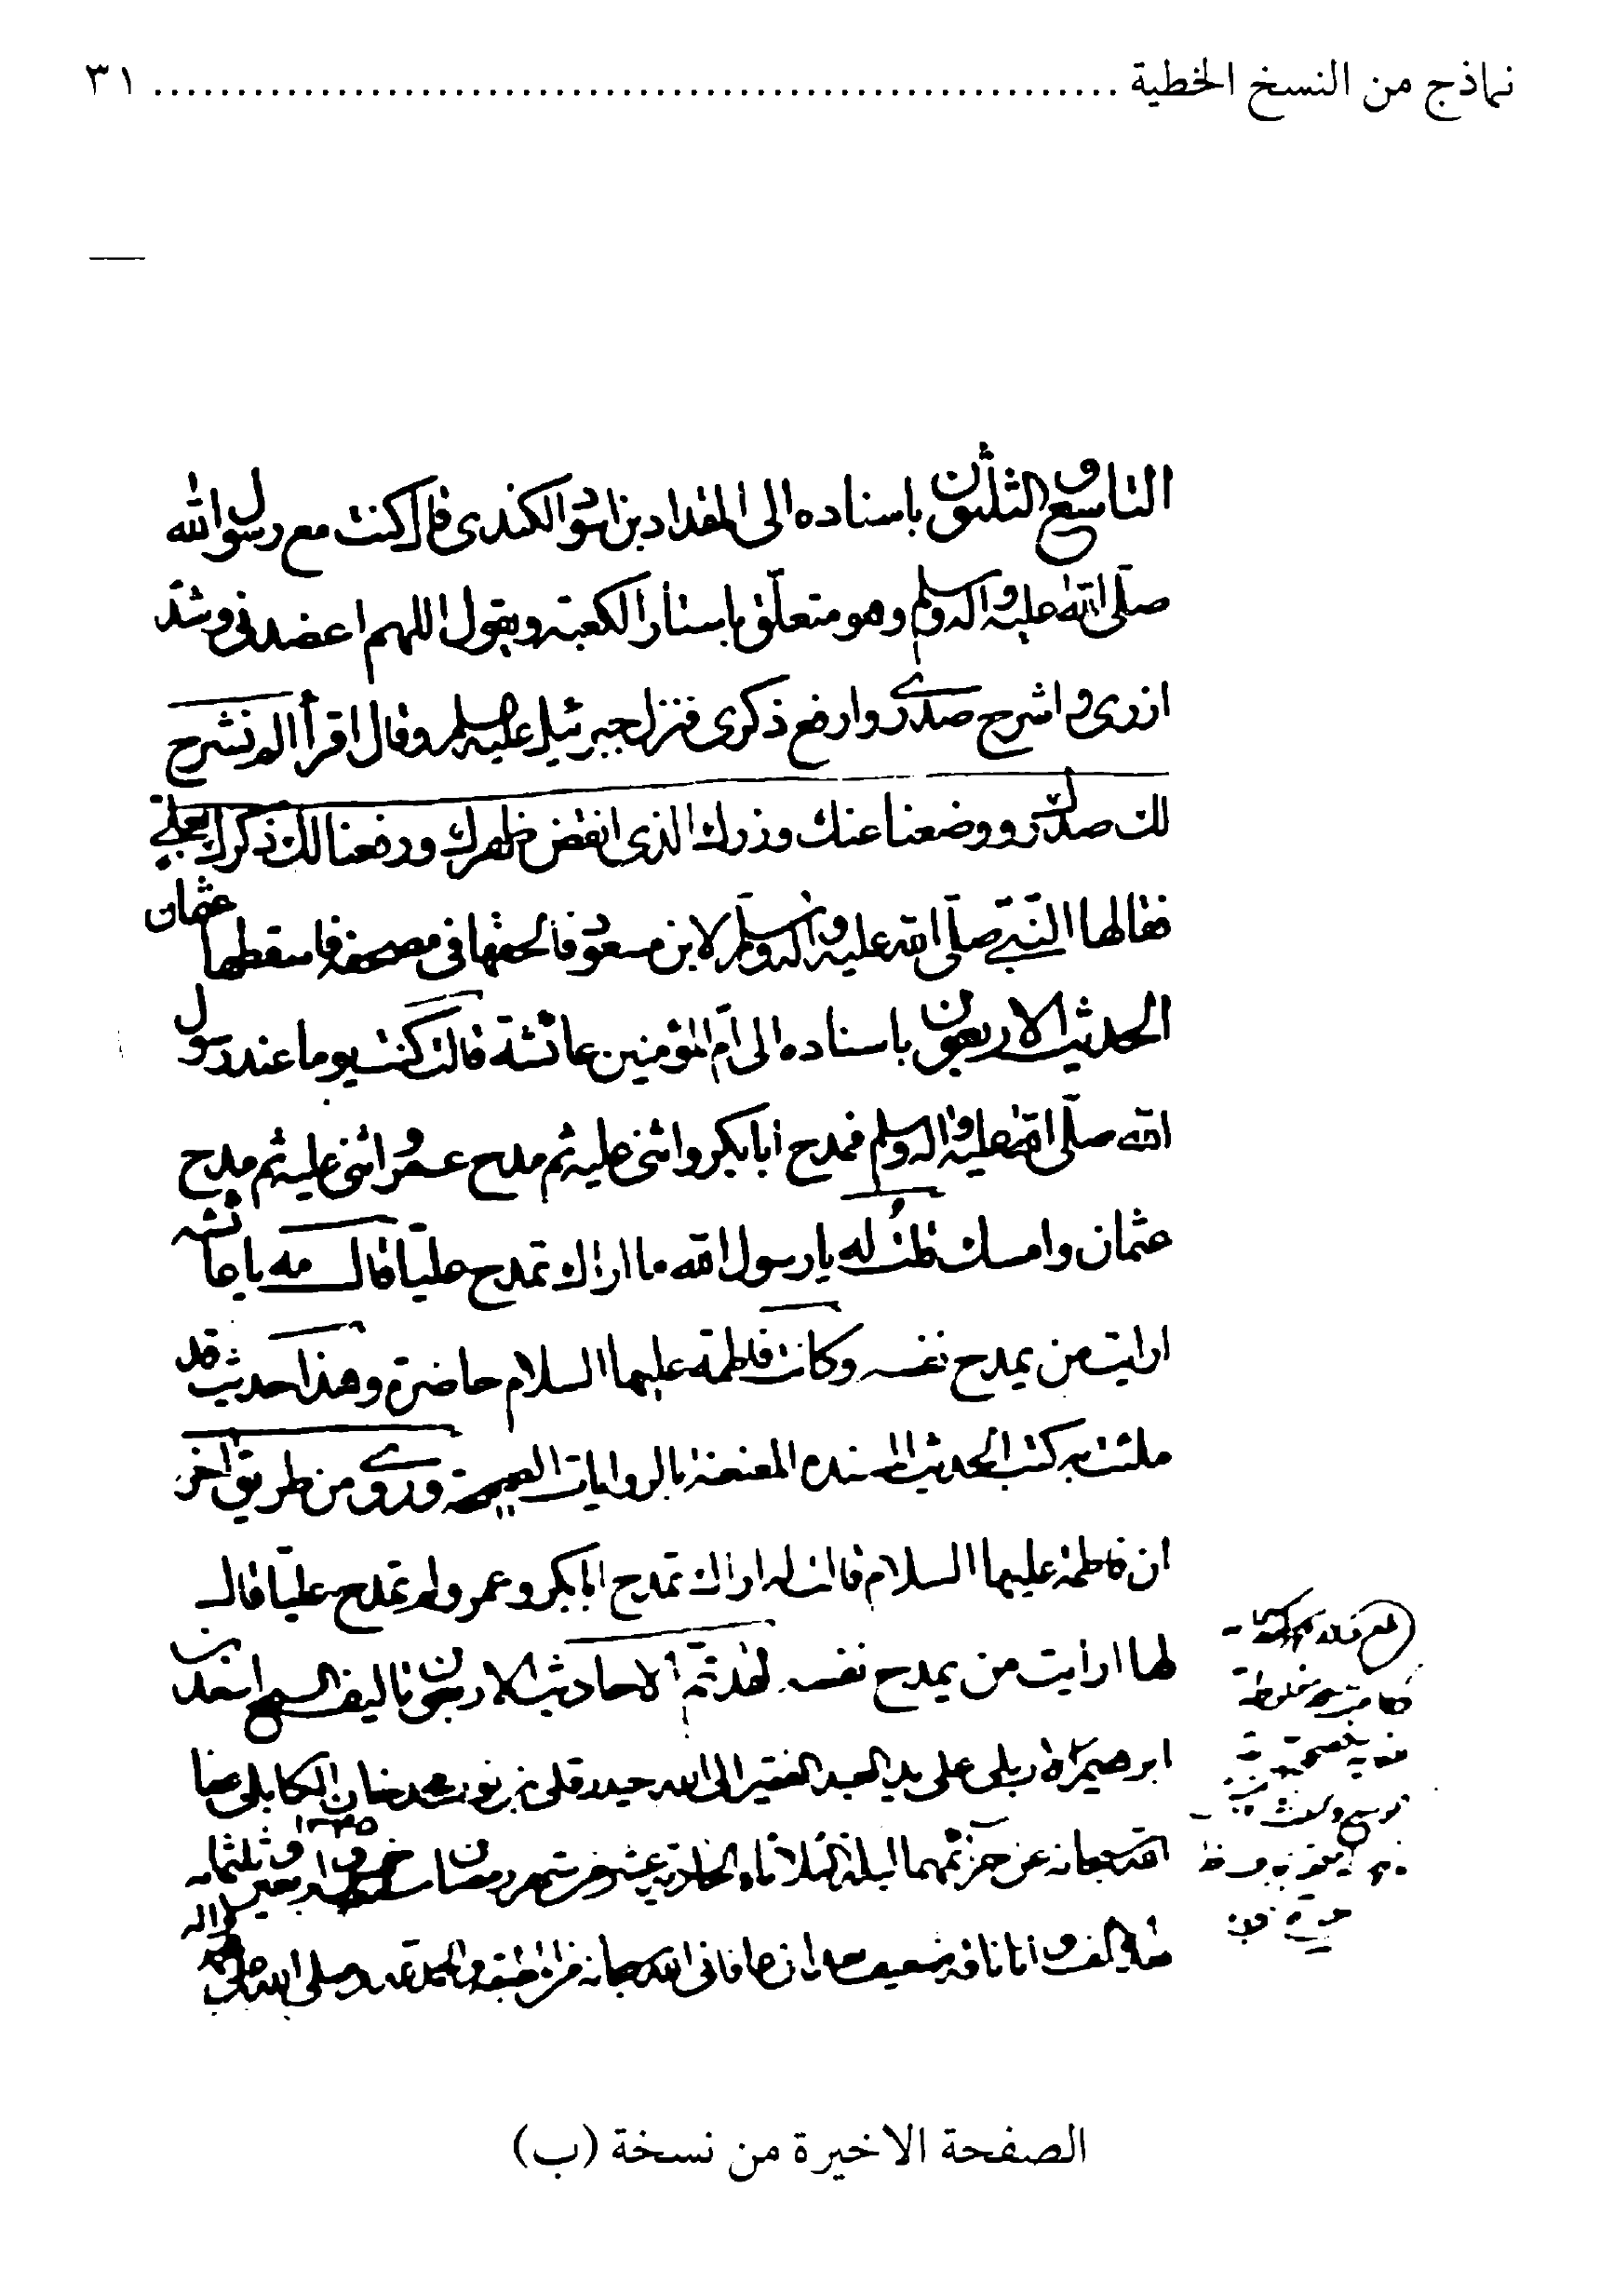 نماذج من النسخ الخطية ........................................................ ٣١
التاسع والثلثون باسناده الى المقداد بن اسود الكندى قال كنت مع رسول الله
صلّى الله عليه واله وسلم وهو متعلّق باستار الكعبة ويقول اللهم اعضدنى وشدّ
ازرى واشرح صدرى وارفع ذكرى فنزل جبرئيل عليه وقال اقرأ الم نشرح
لك صدرك ووضعنا عنك وزرك الذى انقض ظهرك ورفعنا لك ذكرك بعلىّ
فقالها النبىّ صلّى الله عليه واله وسلّم لابن مسعود فالحقها فى مصحفه فاسقطها عثمان
الحديث الاربعون باسناده الى امّ المؤمنين عائشة قالت كنت يوما عند رسول
الله صلّى الله عليه واله وسلم فمدح ابابكر واثنى عليه ثم مدح عمر واثنى عليه ثم مدح
عثمان وامسك قلت له يا رسول الله ما اراك تمدح عليّا قال مه يا عائشه
ارايت من يمدح نفسه وكانت فاطمة عليها السلام حاضرة وهذا حديث قد
ملئت به كتب الحديث المسنده المعنعنة بالروايات الصحيحة وروى من طريق اخر
ان فاطمة عليها السلام قالت له اراك تمدح ابابكر وعمر ولم تمدح عليّا قال
لها ارأيت من يمدح نفسه لقد تمّ الاحاديث الاربعون تاليف اسعد بن
ابرهيم الاربلى على يد العبد الفقير الى الله حيدر قلى بن نور محمد خان الكابلى عفا
الله سبحانه عن جرئمهما ليلة الثلاثاء الحادية عشر من شهر رمضان خمس واربعين وثلثمائه
١٣٤٥
والف وانا ناقه ضعيف عافانى الله سبحانه والحمد لله وصلى الله على محمد واله
الصفحة الاخيرة من نسخة (ب)